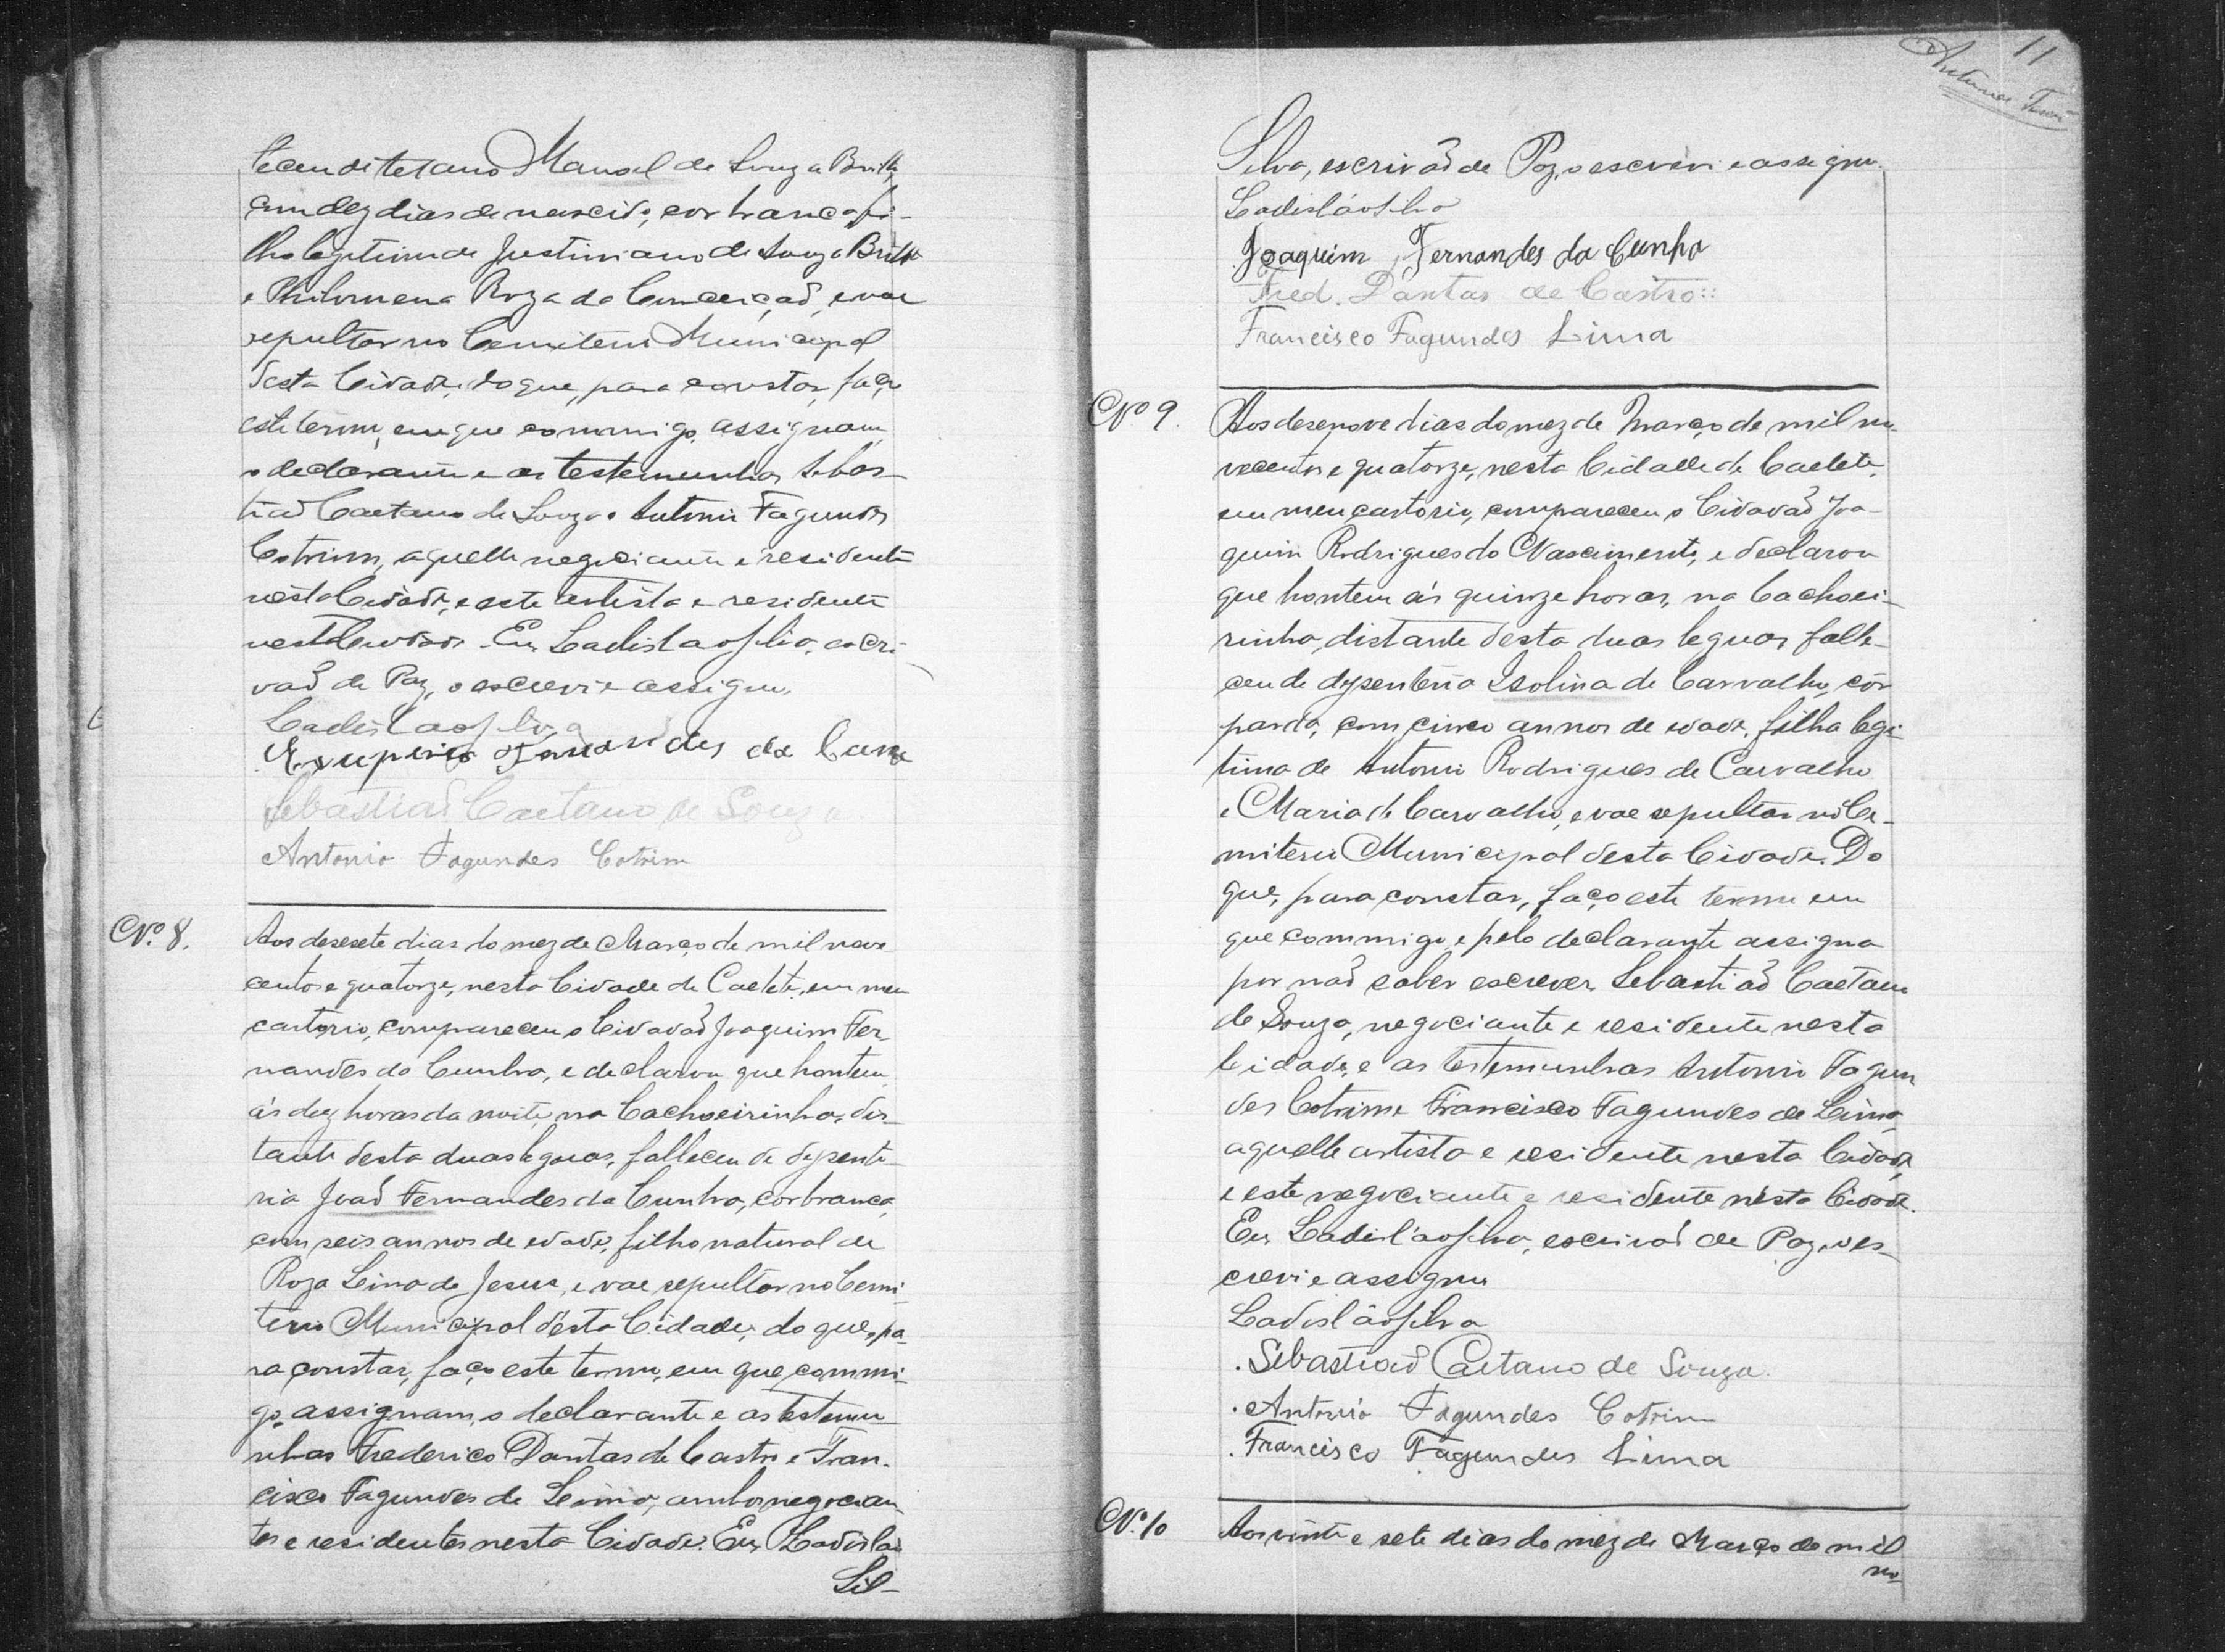 leceu de tetano Manoel de Souza Britto,
com dez dias de nascido, cor branca, fi-
lho legitimo de Justiniano de Souza Britto
e Philomena Roza da Conceição, e vae
sepultar no Cemiterio Municipal
desta Cidade, do que, para constar, faço
este termo, em que commigo assignam
o declarante e as testemunhas Sebas-
tião Caetano de Souza e Antonio Fagundes
Cotrim, aquelle negociante e residente
nesta Cidade, e este artista e residente
nesta Cidade. Eu Ladislao Silva, escri-
vão de Paz, o escrevi e assigno.
Ladislao Silva
Exuperio Fernandes da Cunha
Sebastião Caetano de Souza
Antonio Fagundes Cotrim
Nº 8.
Aos desesete dias do mez de Março de mil nove
centos e quatorze, nesta Cidade de Caeteté, em meu
cartorio, compareceu o Cidadão Joaquim Fer-
nandes da Cunha, e declarou que hontem
ás dez horas da noite, na Cachoeirinha, dis-
tante desta duas leguas, falleceu de dysente-
ria João Fernandes da Cunha, cor branca,
com seis annos de edade, filho natural de
Roza Lima de Jesus, e vae sepultar no Cemi-
terio Municipal désta Cidade, do que, pa-
ra constar, faço este termo, em que commi-
go assignam, o declarante e as testemu-
nhas Frederico Dantas de Castro e Fran-
cisco Fagundes de Lima, ambos negocian
tes e residentes nesta Cidade. Eu Ladislao
Sil-
11
Silva, escrivão de Paz, o escrevi e assigno.
Ladisláo Silva
Joaquim Fernandes da Cunha
Fred. Dantas de Castro::
Francisco Fagundes Lima
Nº 9.
Aos desenove dias do mez de Março de mil no-
vecentos e quatorze, nesta Cidade de Caeteté,
em meu cartorio, compareceu o Cidadão Joa-
quim Rodrigues do Nascimento, e declarou
que hontem ás quinze horas, na Cachoei-
rinha, distante desta duas leguas, falle-
ceu de dysenteria Isolina de Carvalho, côr
parda, com cinco annos de edade, filha legi-
tima de Antonio Rodrigues de Carvalho
e Maria de Carvalho, e vae sepultar no Ce-
miterio Municipal desta Cidade. Do
que, para constar, faço este termo em
que commigo, e pelo declarante assigna
por não saber escrever Sebastião Caetano
de Souza, negociante e residente nesta
Cidade, e as testemunhas Antonio Fagun
des Cotrim e Francisco Fagundes de Lima,
aquelle artista e residente nesta Cidade,
e este negociante e residente nésta Cidade.
Eu Ladisláo Silva, escrivão de Paz, o es-
crevi e assigno
Ladisláo Silva
.Sebastião Caetano de Souza.
.Antonio Fagundes Cotrim
.Francisco Fagundes Lima
Nº. 10
Aos vinte e sete dias do mez de Março de mil
no-